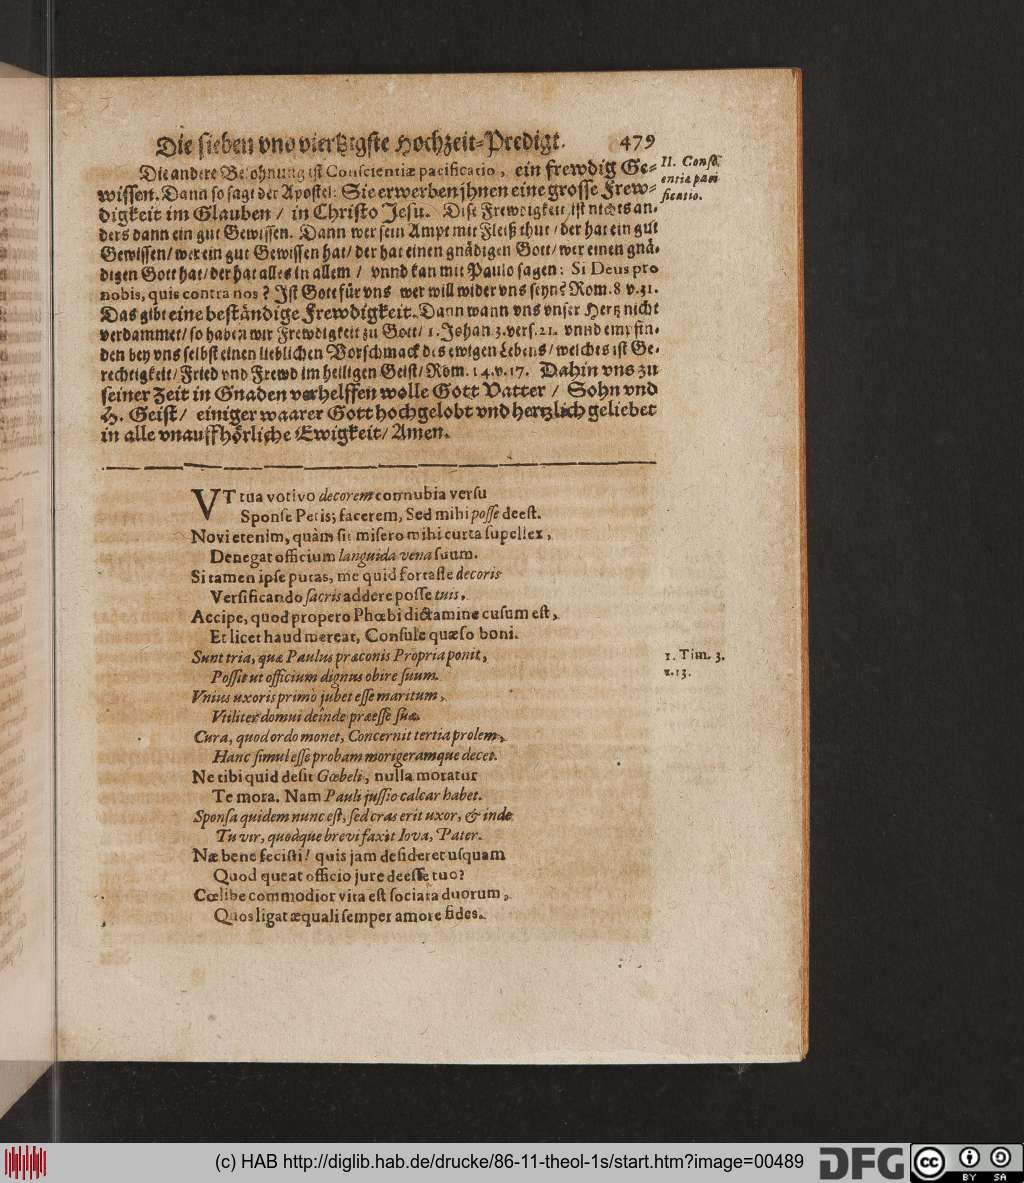 Die sieben vnd viertzigste Hochzeit-Predigt. 479
Die andere Belohnung ist Conscientiæ pacificatio, ein frewdig Ge-
wissen. Dann so sagt der Apostel: Sie erwerben jhnen eine grosse Frew-
digkeit im Glauben / in Christo Jesu. Dise Frewdigkeit ist nichts an-
ders dann ein gut Gewissen. Dann wer sein Ampt mit Fleiß thut / der hat ein gut
Gewissen / wer ein gut Gewissen hat / der hat einen gnädigen Gott / wer einen gnä-
digen Gott hat / der hat alles in allem / vnnd kan mit Paulo sagen: Si Deus pro
nobis, quis contra nos? Ist Gott für vns wer will wider vns seyn? Rom. 8 v. 31.
Das gibt eine beständige Frewdigkeit. Dann wann vns vnser Hertz nicht
verdammet / so haben wir Frewdigkeit zu Gott / 1. Johan 3. vers. 21. vnnd empfin-
den bey vns selbst einen lieblichen Vorschmack des ewigen Lebens / welches ist Ge-
rechtigkeit / Fried vnd Frewd im heiligen Geist / Röm. 14. v. 17. Dahin vns zu
seiner Zeit in Gnaden verhelffen wolle Gott Vatter / Sohn vnd
H. Geist / einiger waarer Gott hochgelobt vnd hertzlich geliebet
in alle vnauffhörliche Ewigkeit / Amen.
II. Consci-
entiæ paci-
ficatio.
VT tua votivo decorem connubia versu
Sponse Petis; facerem, Sed mihi posse deest.
Novi etenim, quàm sit misero mihi curta supellex,
Denegat officium languida vena suum.
Si tamen ipse putas, me quid fortasse decoris
Versificando sacris addere posse tuis,
Accipe, quod propero Phœbi dictamine cusum est,
Et licet haud mereat, Consule quæso boni.
Sunt tria, quæ Paulus præconis Propria ponit,
Possit ut officium dignus obire suum.
Vnius uxoris primò jubet esse maritum,
Viiliter domui deinde præesse suæ.
Cura, quod ordo monet, Concernit tertia prolem,
Hanc simul esse probam morigeramque decet.
Ne tibi quid desit Gœbeli, nulla moratur
Te mora. Nam Pauli jussio calcar habet.
Sponsa quidem nunc est, sed cras erit uxor, & inde
Tu vir, quodque brevi faxit Iova, Pater.
Næ bene fecisti! quis jam desideret usquam
Quod queat officio jure deesse tuo?
Cœlibe commodior vita est sociata duorum,
Quos ligat æquali semper amore fides.
1. Tim. 3.
v. 13.
(c) HAB http://diglib.hab.de/drucke/86-11-theol-1s/start.htm?image=00489
DFG
cc BY SA